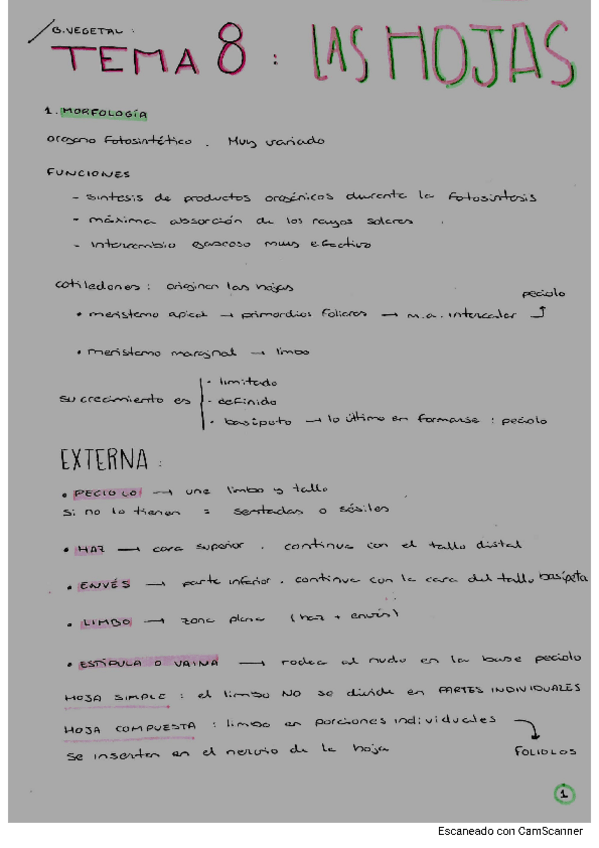 B. VEGETAL :
TEMA 8 : LAS HOJAS
1. MORFOLOGÍA
organo fotosintético . Muy variado
FUNCIONES
- síntesis de productos orgánicos durante la fotosíntesis
- máxima absorción de los rayos solares
- intercambio gaseoso muy efectivo
cotiledones : originan las hojas
peciolo
• meristemo apical → primordios foliares → m.a. intercalar
• meristemo marginal → limbo
su crecimiento es
- limitado
- definido
• basípeto → lo último en formarse : peciolo
EXTERNA :
• PECIOLO → une limbo y tallo
si no lo tienen = sentadas o sésiles
• HAZ → cara superior . continua con el tallo distal
• ENVÉS → parte inferior . continua con la cara del tallo basípeta
• LIMBO → zona plana (haz + envés)
• ESTÍPULA O VAINA → rodea al nudo en la base peciolo
HOJA SIMPLE : el limbo NO se divide en PARTES INDIVIDUALES
HOJA COMPUESTA : limbo en porciones individuales
se insertan en el nervio de la hoja
FOLIOLOS
1
Escaneado con CamScanner